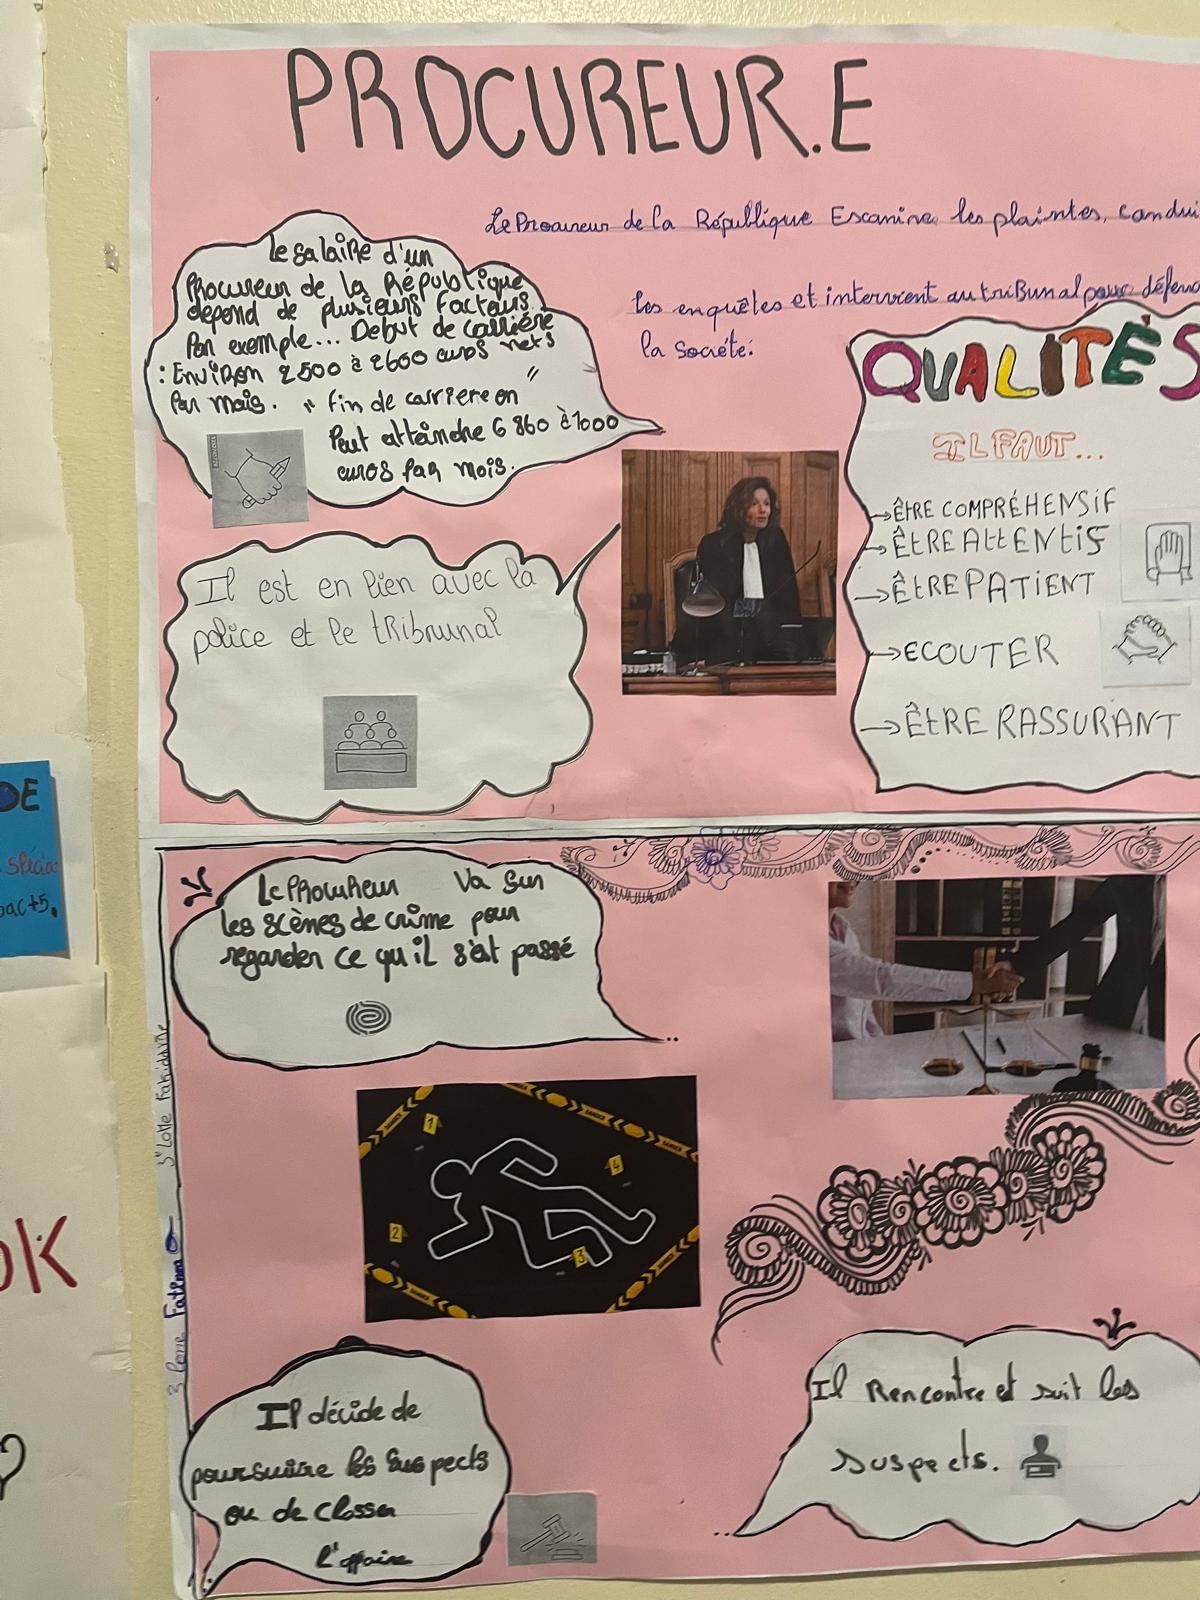 PROCUREUR.E
Le Procureur de la République Escanine les plaintes, condui
les enquêtes et intervient au triBunal pour défend
la Societé.
le salaire d'un
Procureur de la République
dépend de plusieurs facteurs.
Par exemple... Debut de carrière
: Environ 2500 à 2600 euros nets
Par mois. " fin de carriere on "
Peut atteindre 6 860 à 7000
euros par mois.
QUALITÉS
IL FAUT...
→ÊTRE COMPRÉHENSIF
→ÊTRE ATTENTIF
→ÊTRE PATIENT
→ECOUTER
→ÊTRE RASSURANT
Il est en lien avec la
police et le tribunal
Le Procureur Va sur
les scènes de crime pour
regarder ce qu'il s'est passé
1
2
3
4
Il décide de
poursuivre les suspects
ou de classer
l'affaire
Il Rencontre et suit les
suspects.
DE
spécia
bac+5.
OK